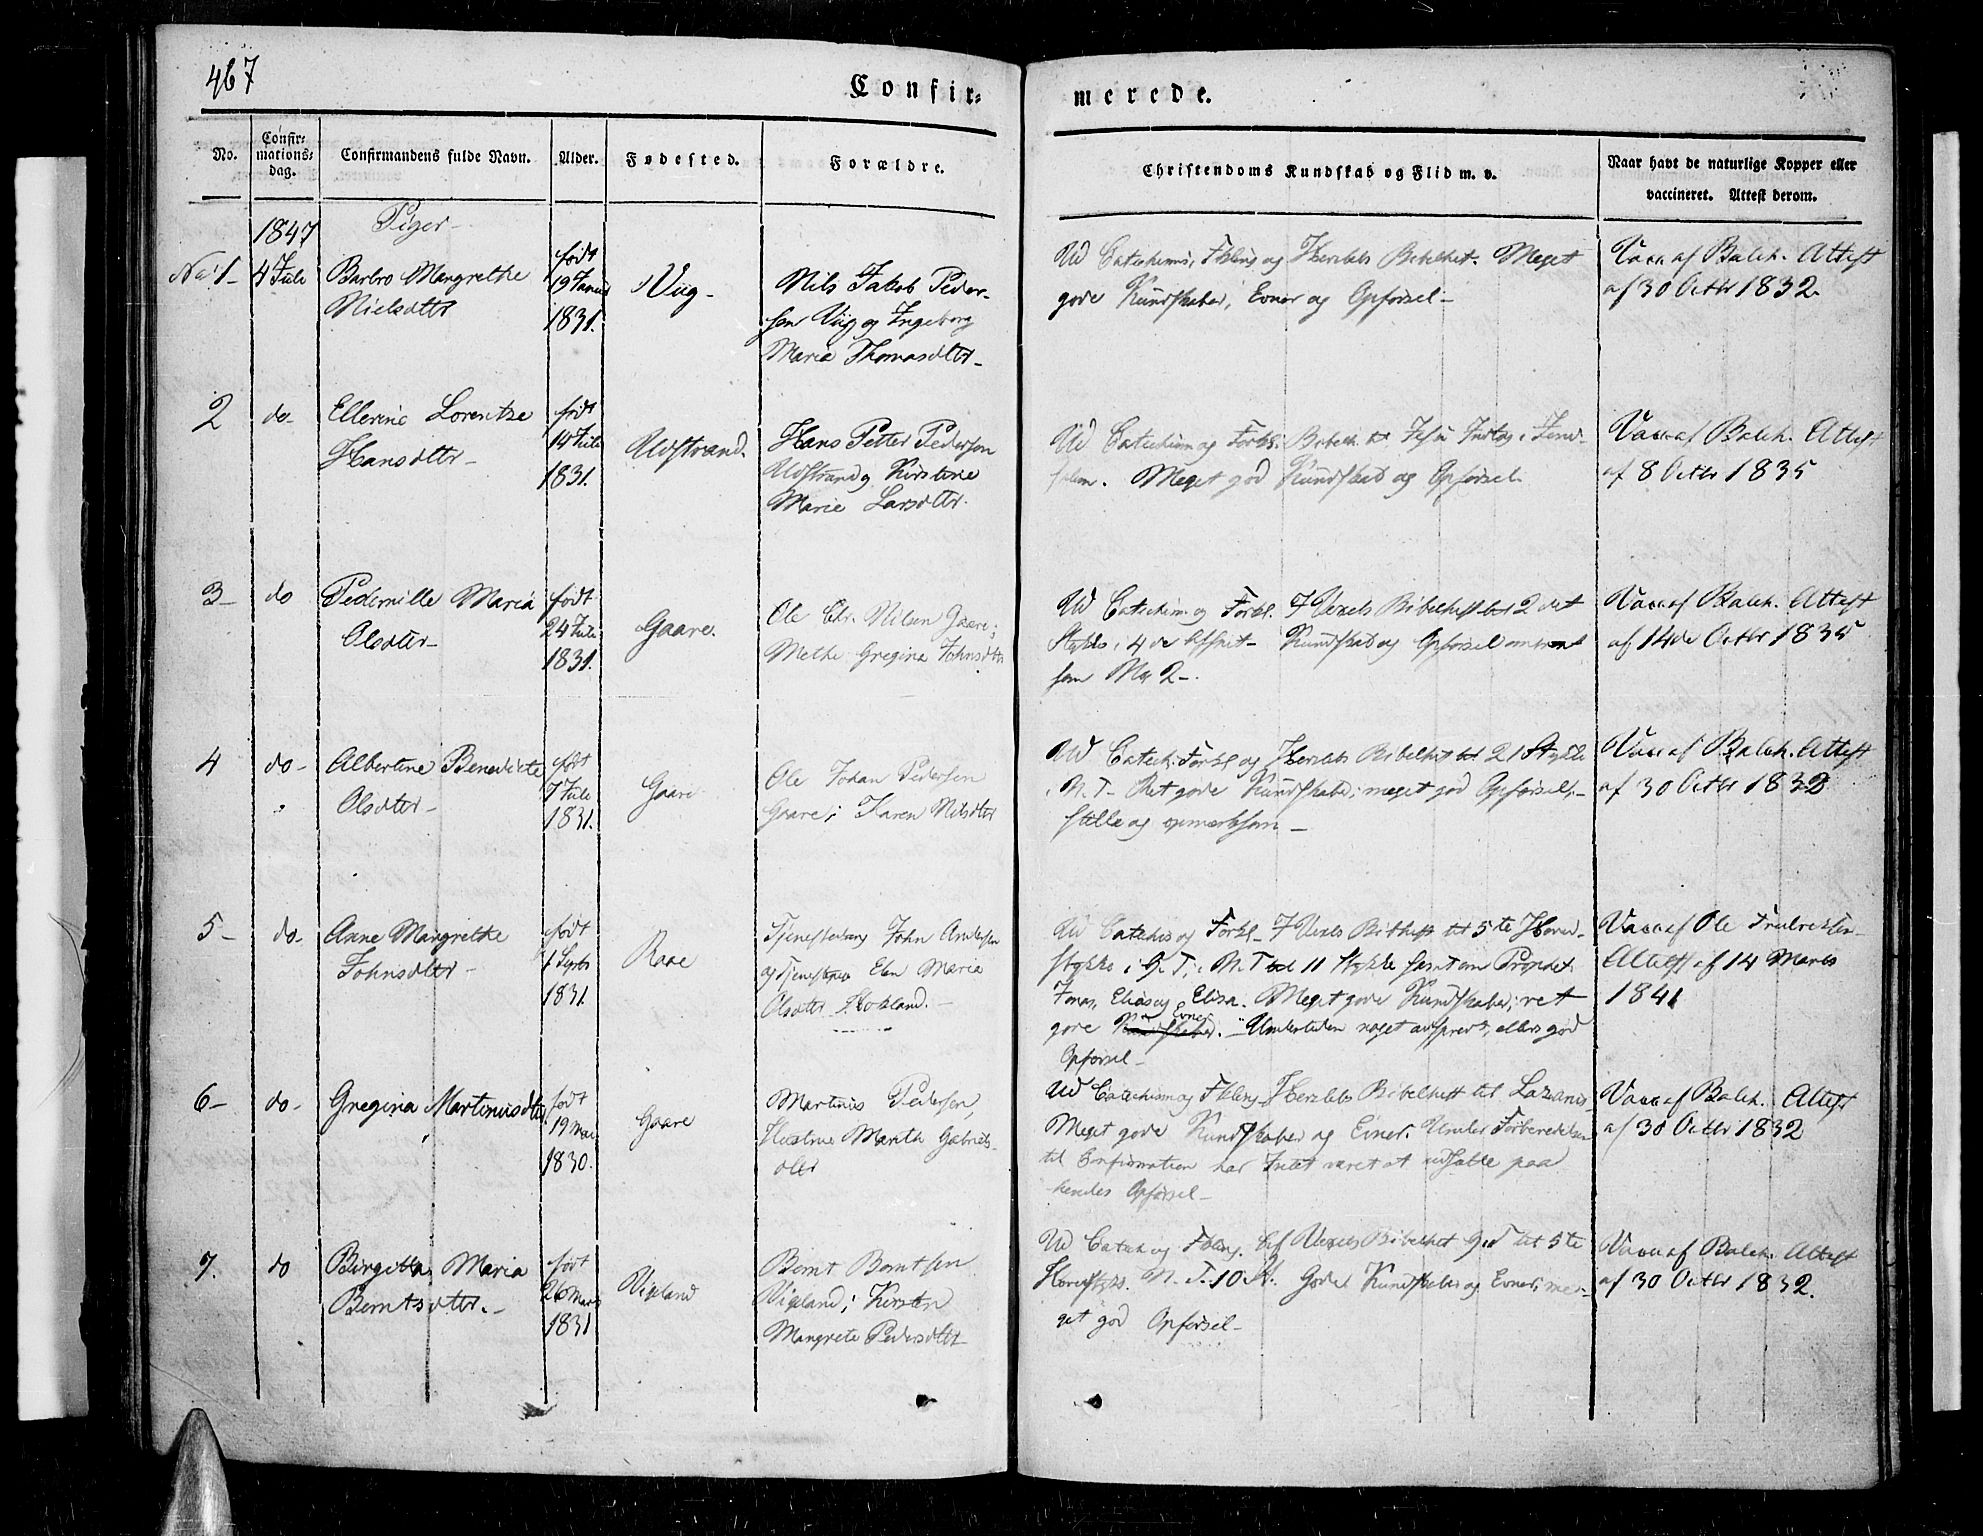 467
Confir-
merede.
No.
Confir-
mations-
dag.
Confirmandens fulde Navn.
Alder.
Fødested.
Forældre.
Christendoms Kundskab og Flid m. v.
Naar havt de naturlige Kopper eller
vaccineret. Attest derom.
1847
Piger -
No 1 -
4 Juli
Barbro Margrethe
Nielsdtter
født
19 Januar
1831.
Viig -
Nils Jakob Peder-
sen Viig og Ingeborg
Maria Thomasdtter -
Ud Catechism, Fklring og Herslebs Bibelhist. Meget
gode Kundskaber, Evner og Opførsel -
Vacc af Balch. Attest
af 30 Octbr 1832.
2
do -
Ellerine Lorentze
Hansdtter -
født
14 Juli
1831.
Udstrand.
Hans Petter Pedersen
Udstrand og Kirstine
Marie Larsdtter.
Ud Catechism og Forkl. Bibelh. til Jesu Indtog i Jeru-
salem. Meget god Kundskab og Opførsel.
Vacc af Balch. Attest
af 8 Octbr 1835
3 -
do
Pedernille Maria
Olsdtter -
født
24 Juli
1831.
Gaare.
Ole Chr. Nilsen Gaare;
Methe Gregina Johnsdtter
Ud Catechism og Forkl. i Vexels Bibelhist til 2det
Stykke i 4de Afsnit - Kundskab og Opførsel omtrent
som No 2 -
Vacc af Balch. Attest
af 14de Octbr 1835
4
do -
Albertine Benedikte
Olsdtter -
født
7 Juli
1831.
Gaare
Ole Johan Pedersen
Gaare; Karen Nilsdtter
Ud Catech. Forkl og Herslebs Bibelhist til 21 Stykke
i N. T - Ret gode Kundskaber; meget god Opførsel, -
stille og opmærksom -
Vacc af Balch. Attest
af 30 Octbr 1832
5 -
do -
Anne Margrethe
Johnsdtter -
født
1 Septbr
1831.
Raae
Tjenestedreng John Andersen
og Tjenestepige Elen Maria
Olsdtter Hokland. -
Ud Catechis og Forkl - i Vexels Bibhist til 5te Hoved-
stykke i G. T, i N. T til 11 Stykke samt om Prophet
Jonas, Elias og Elisa. Meget gode Kundskaber; ret
gode Kundskaber. Evner - Undertiden noget adspredt, ellers god
Opførsel -
Vacc af Ole Fredriksen -
Attest af 14 Marts
1841
6 -
do -
Gregina Martinusdtter
født
19 Mai
1830.
Gaare
Martinus Pedersen,
Hustrue Marith Gabriels-
dtter
Ud Catechism og Fklring - Herslebs Bibelhist til Lazarus,
Meget gode Kundskaber og Evner. Under Forberedelsen
til Confirmation har Intet været at udsætte paa
hendes Opførsel -
Vacc af Balch. Attest
af 30 Octbr 1832
7.
do
Birgitta Maria
Berntsdtter. -
født
26 Marts
1831
Vigeland
Bernt Berntsen
Vigeland; Kirsten
Margrete Pedersdtter
Ud Catech og Fklring. Af Vexels Bibelhist G. T til 5te
Hovedstykke. N. T. 10 St. Gode Kundskaber og Evner; me-
get god Opførsel -
Vacc af Balch. Attest
af 30 Octbr 1832.